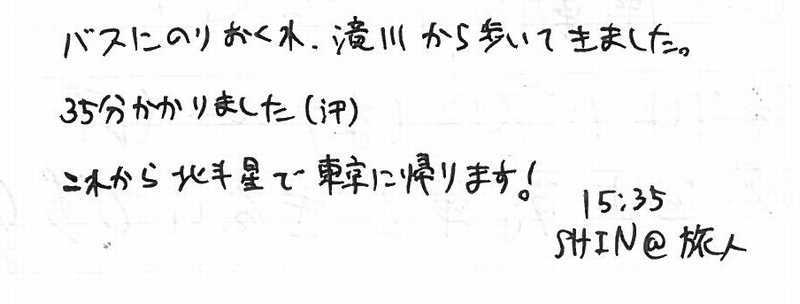 バスにのりおくれ、滝川から歩いてきました。
35分かかりました(汗)
これから北斗星で東京に帰ります!
15:35
SHIN@旅人